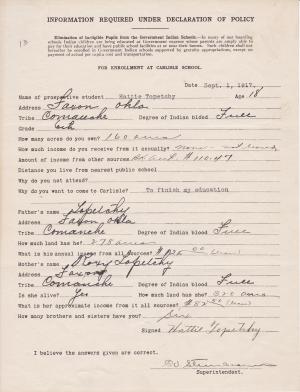 INFORMATION REQUIRED UNDER DECLARATION OF POLICY
Elimination of Ineligible Pupils from the Government Indian Schools.—In many of our boarding
schools Indian children are being educated at Government expense whose parents are amply able to
pay for their education and have public school facilities at or near their homes. Such children shall not
hereafter be enrolled in Government Indian schools supported by gratuity appropriations, except on
payment of actual per capita cost and transportation.
FOR ENROLLMENT AT CARLISLE SCHOOL.
Date Sept. 1, 1917.
Name of prospective student Hattie Topetchy Age 18
Address Faxon, Okla
Tribe Comanche Degree of Indian blood Full
Grade 6th
How many acres do you own? 160 acres
How much income do you receive from it annually? none
Amount of income from other sources $110.47
Distance you live from nearest public school
Why do you not attend?
Why do you want to come to Carlisle? To finish my education
Father's name Topetchy
Address Faxon, Okla
Tribe Comanche Degree of Indian blood Full
How much land has he? 278 acres
What is his annual income from all sources?
Mother's name Roxy Topetchy
Address Faxon
Tribe Comanche Degree of Indian blood Full
Is she alive? Yes How much land has she? 320 acres
What is her approximate income from all sources?
How many brothers and sisters have you? Six
Signed Hattie Topetchy
I believe the answers given are correct.
Superintendent.